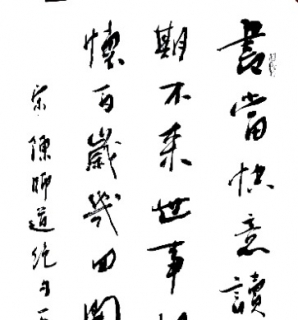 書當快意讀
期不來世事
懷百歲幾回開
宋陳師道絕句